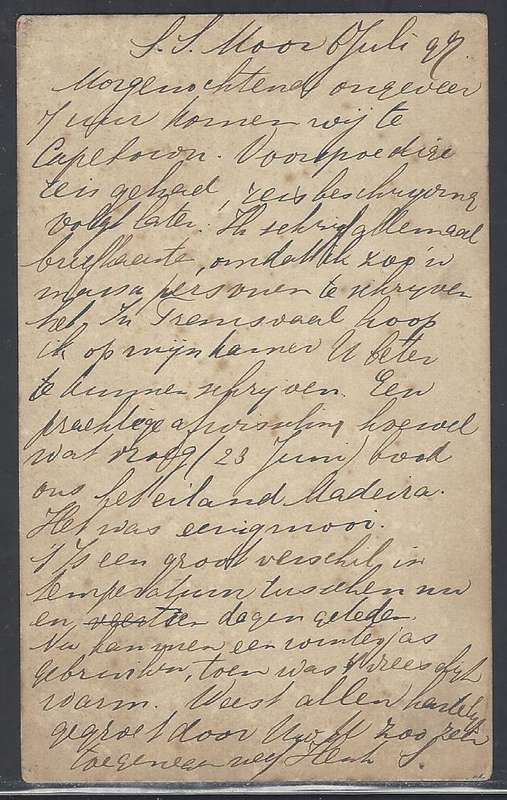 S.S. Moor 6 Juli 97.
Morgenochtend ongeveer
7 uur komen wij te
Capetown. Voorspoedige
reis gehad, reisbeschryving
volgt later. Ik schryf allemaal
briefkaarten, omdat ik zoo'n
massa personen te schryven
heb. In Transvaal hoop
ik op mijn kamer U beter
te kunnen schryven. Een
prachtige afwisseling, hoewel
wat vroeg (23 Juni) bood
ons het eiland Madeira.
Het was eenig mooi.
't Is een groot verschil in
temperatuur tusschen nu
en dagen geleden.
Nu kan men een winterjas
gebruiken, toen was 't vreeslyk
warm. Weest allen hartelyk
gegroet door Uw zoo zeer
toegenegen Henk